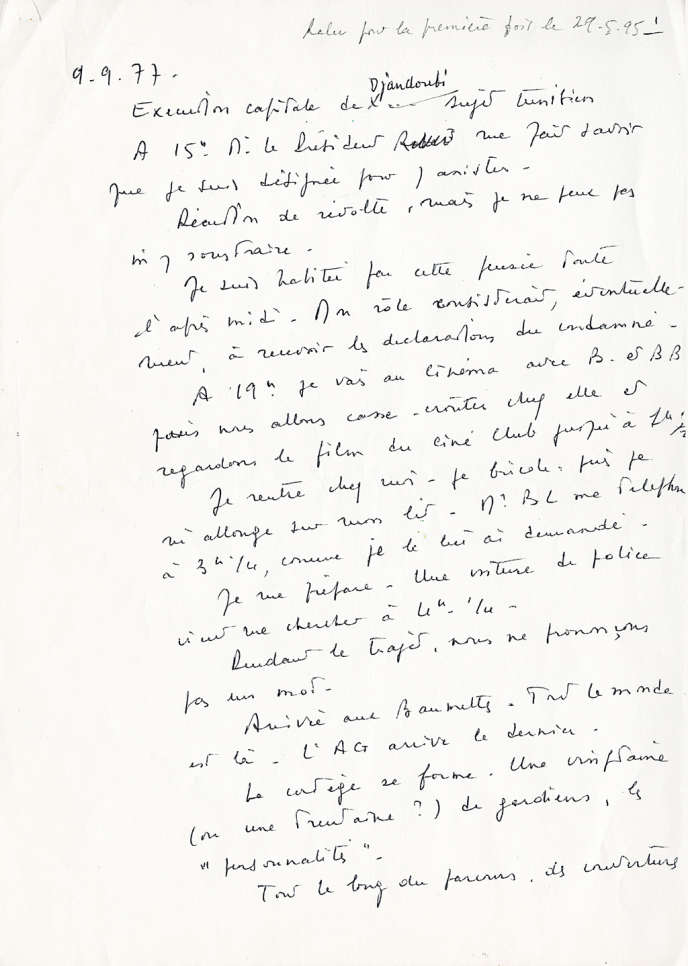 Relu pour la première fois le 29-5-95 !
9.9.77.
Djandoubi
Execution capitale de sujet tunisien
A 15h Mr le Président me fait savoir
que je suis désignée pour y assister.
Réaction de révolte, mais je ne peux pas
m'y soustraire.
Je suis habitée par cette pensée toute
l'après midi. Mon rôle consisterait, éventuelle-
ment, à recevoir les déclarations du condamné.
A 19h je vais au cinéma avec B. et BB
puis nous allons casse-croûter chez elle et
regardons le film du ciné club jusqu'à 1h
Je rentre chez moi. Je bricole, puis je
m'allonge sur mon lit. Mr BL me téléphone
à 3h 1/4, comme je le lui ai demandé.
Je me prépare. Une voiture de police
vient me chercher à 4h 1/4.
Pendant le trajet, nous ne prononçons
pas un mot.
Arrivée aux Baumettes. Tout le monde
est là. L'AG arrive le dernier.
Le cortège se forme. Une vingtaine
(ou une trentaine ?) de gardiens, les
"personnalités".
Tout le long du parcours, des couvertures